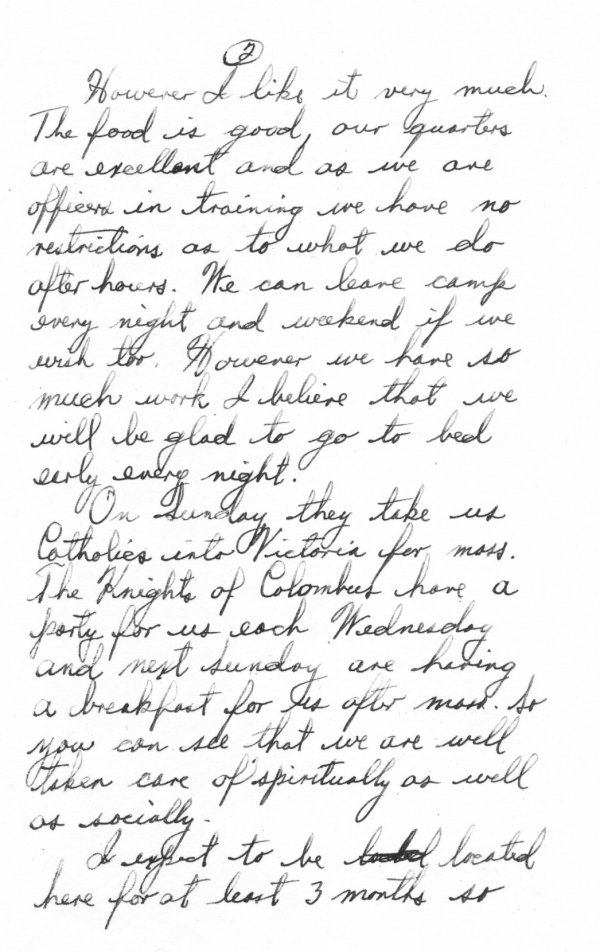 2
However I like it very much.
The food is good, our quarters
are excellent and as we are
officers in training we have no
restrictions as to what we do
after hours. We can leave camp
every night and weekend if we
wish too. However we have so
much work I believe that we
will be glad to go to bed
early every night.
On Sunday they take us
Catholics into Victoria for mass.
The Knights of Colombus have a
party for us each Wednesday
and next Sunday are having
a breakfast for us after mass. So
you can see that we are well
taken care of spiritually as well
as socially.
I expect to be located
here for at least 3 months so